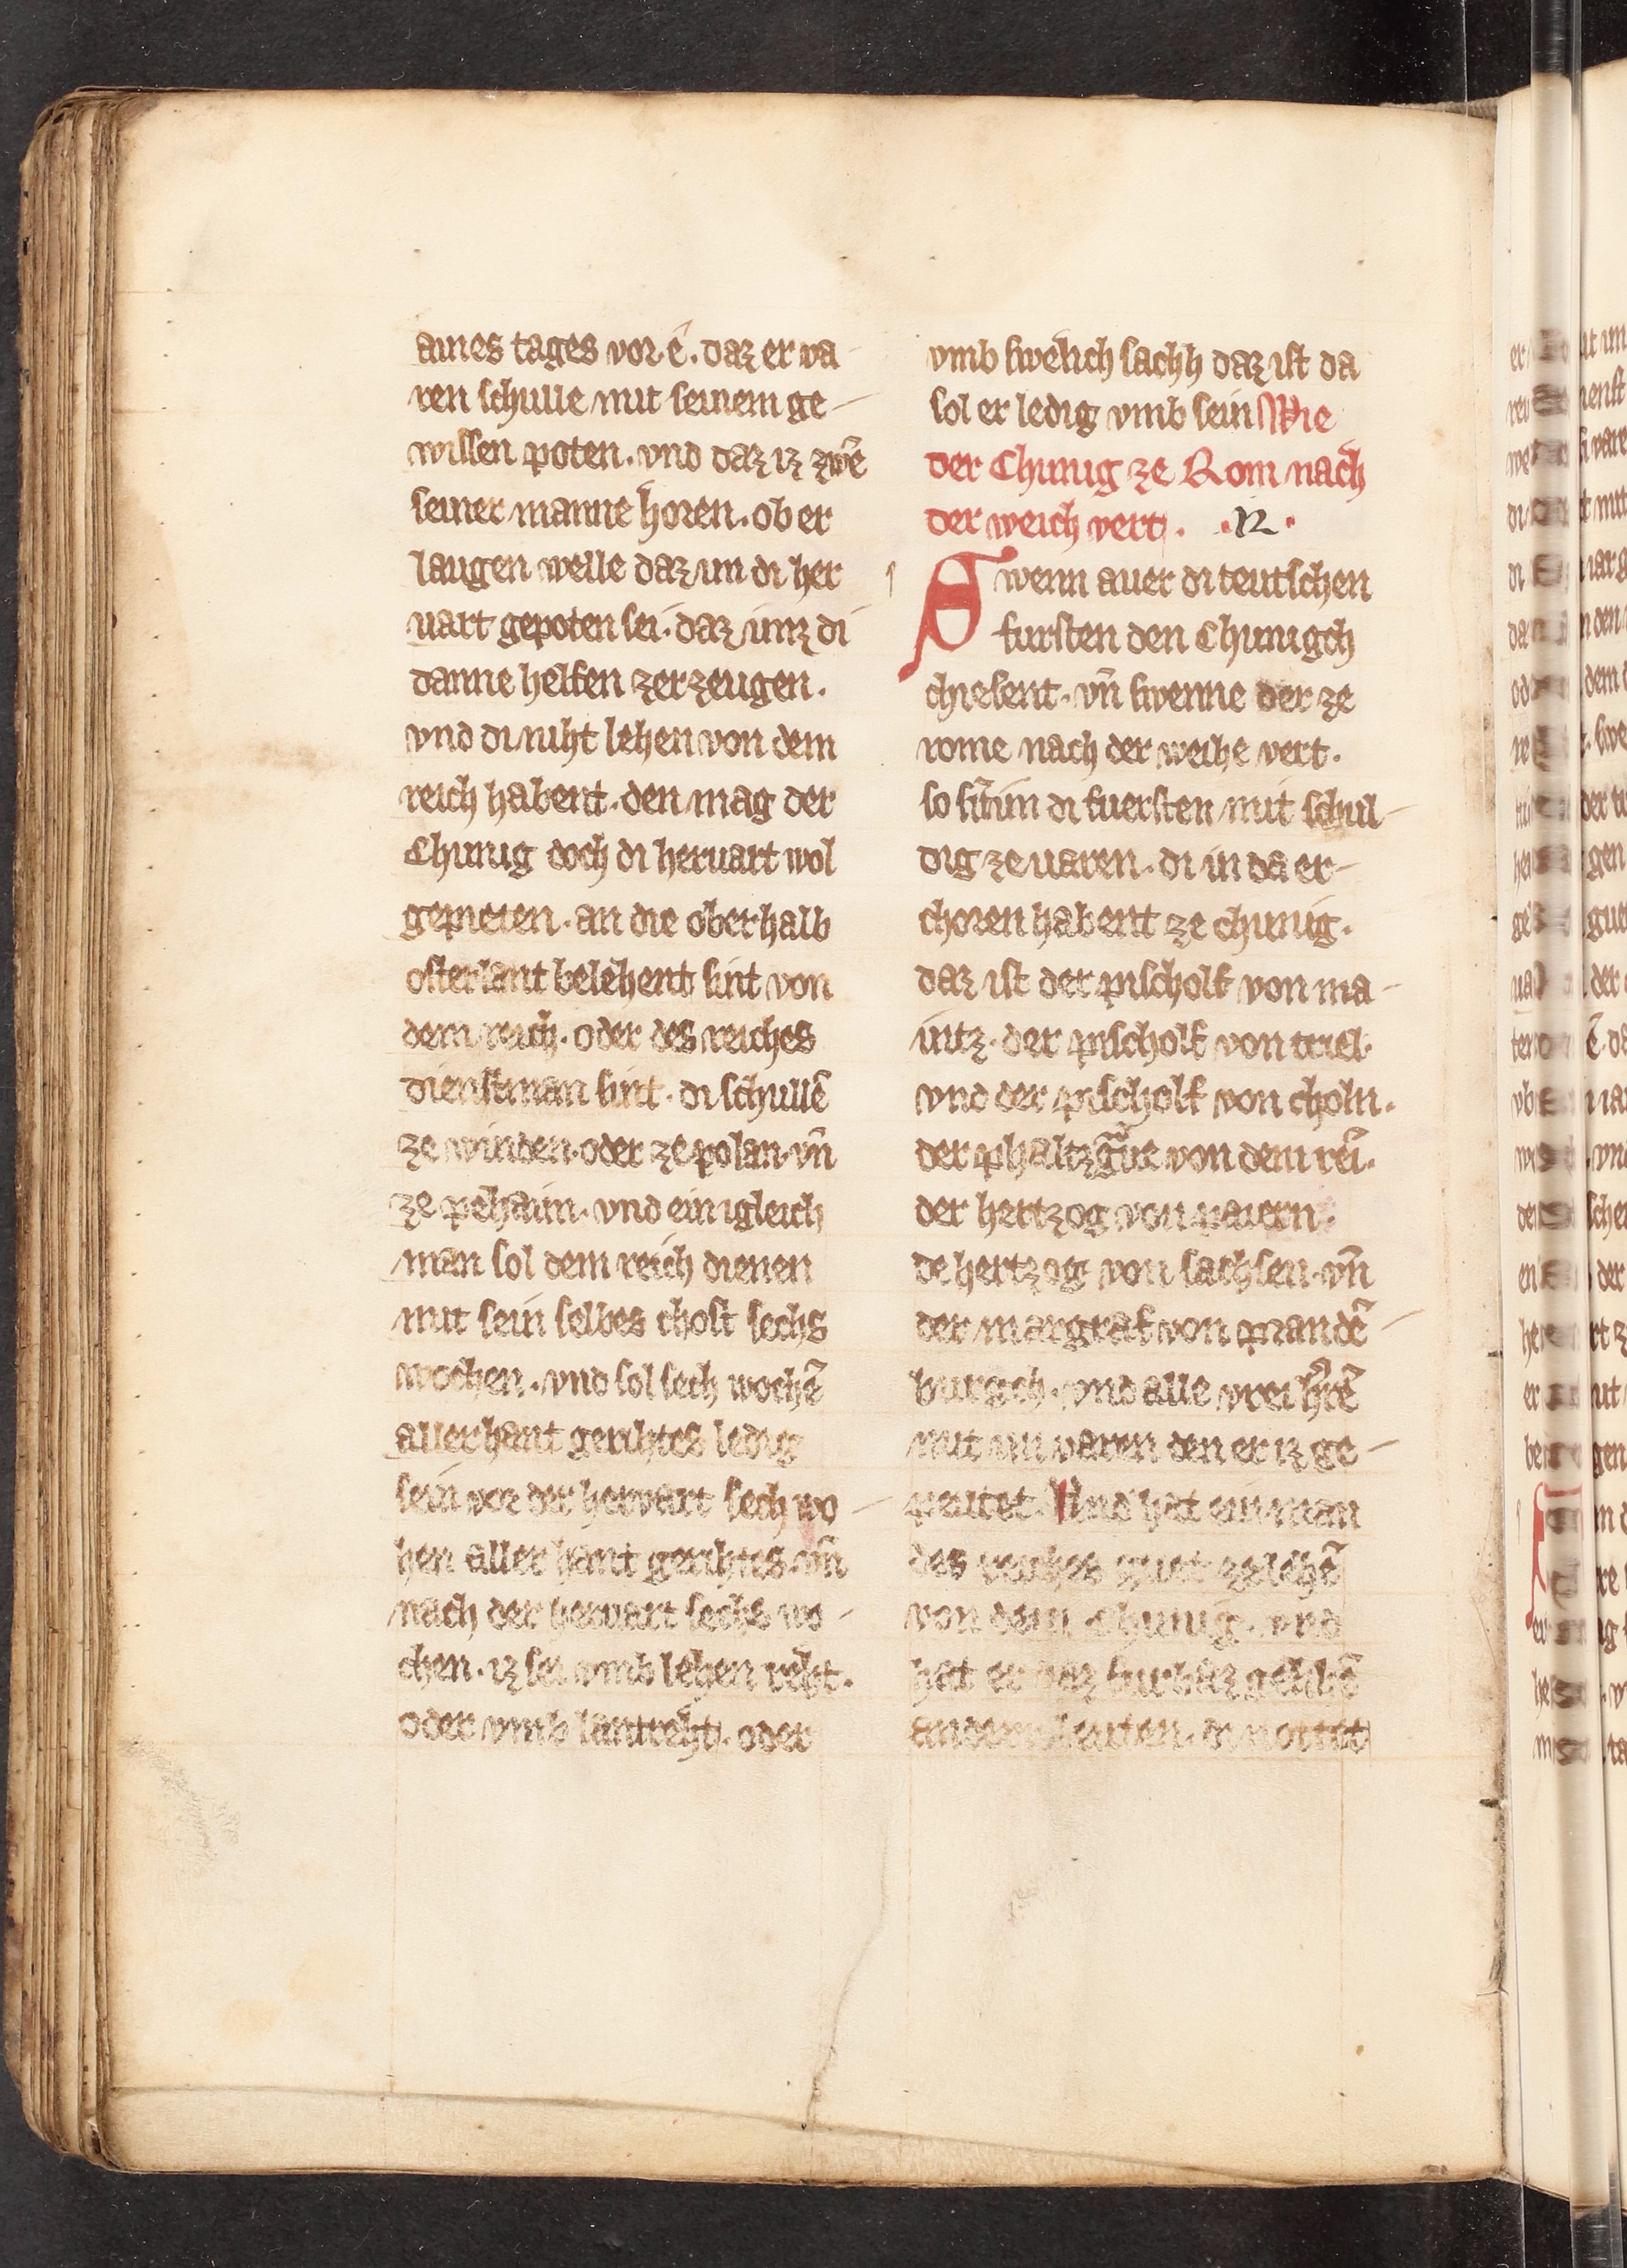 aines tages vor ê. daz er va
ren schulle mit seinem ge-
wissen poten. vnd daz iz zwē
seiner manne horen. ob er
laugen welle daz im di her
uart gepoten sei. daz imz di
danne helfen zerzeugen.
vnd di niht lehen von dem
reich habent. den mag der
Chunig doch di heruart wol
gepieten. an die oberhalb
osterlant belehent sint von
dem reich. oder des reiches
dienstman sint. di schullē
ze winden. oder ze polan. vn̄
ze pehaim. vnd ein igleich
man sol dem reich dienen
mit sein selbes chost sechs
wochen. vnd sol sech wochē
aller hant gerihtes ledig
sein vor der hervart sech wo-
hen aller hant gerihtes. vn̄
nach der hervart sechs wo-
chen. iz sei vmb lehen reht.
oder vmb lantreht. oder
vmb swelich sachh daz ist da
sol er ledig vmb sein Wie
der Chunig ze Rom nach
der weich vert. .12.
A wenn auer di teutschen
fursten den Chunigch
chiesent. vn̄ swenne der ze
rome nach der weihe vert.
so sītim di fuersten mit schul-
dig ze uaren. di in da er-
choren habent ze chunig.
daz ist der pischolf von ma-
intz. der pischolf von triel.
vnd der pischolf von choln.
der phaltzgᵃue von dem rēī.
der hertzog von paiern.
de hertzog von sachsen. vn̄
der margraf von prandē-
burgch. vnd alle vrei h̄rē
mit im varen den er iz ge-
peutet. Und hat ein man
des reiches guet ze lehē
von dem Chunig. vnd
hat er daz furbaz gelihē
andern leuten. di